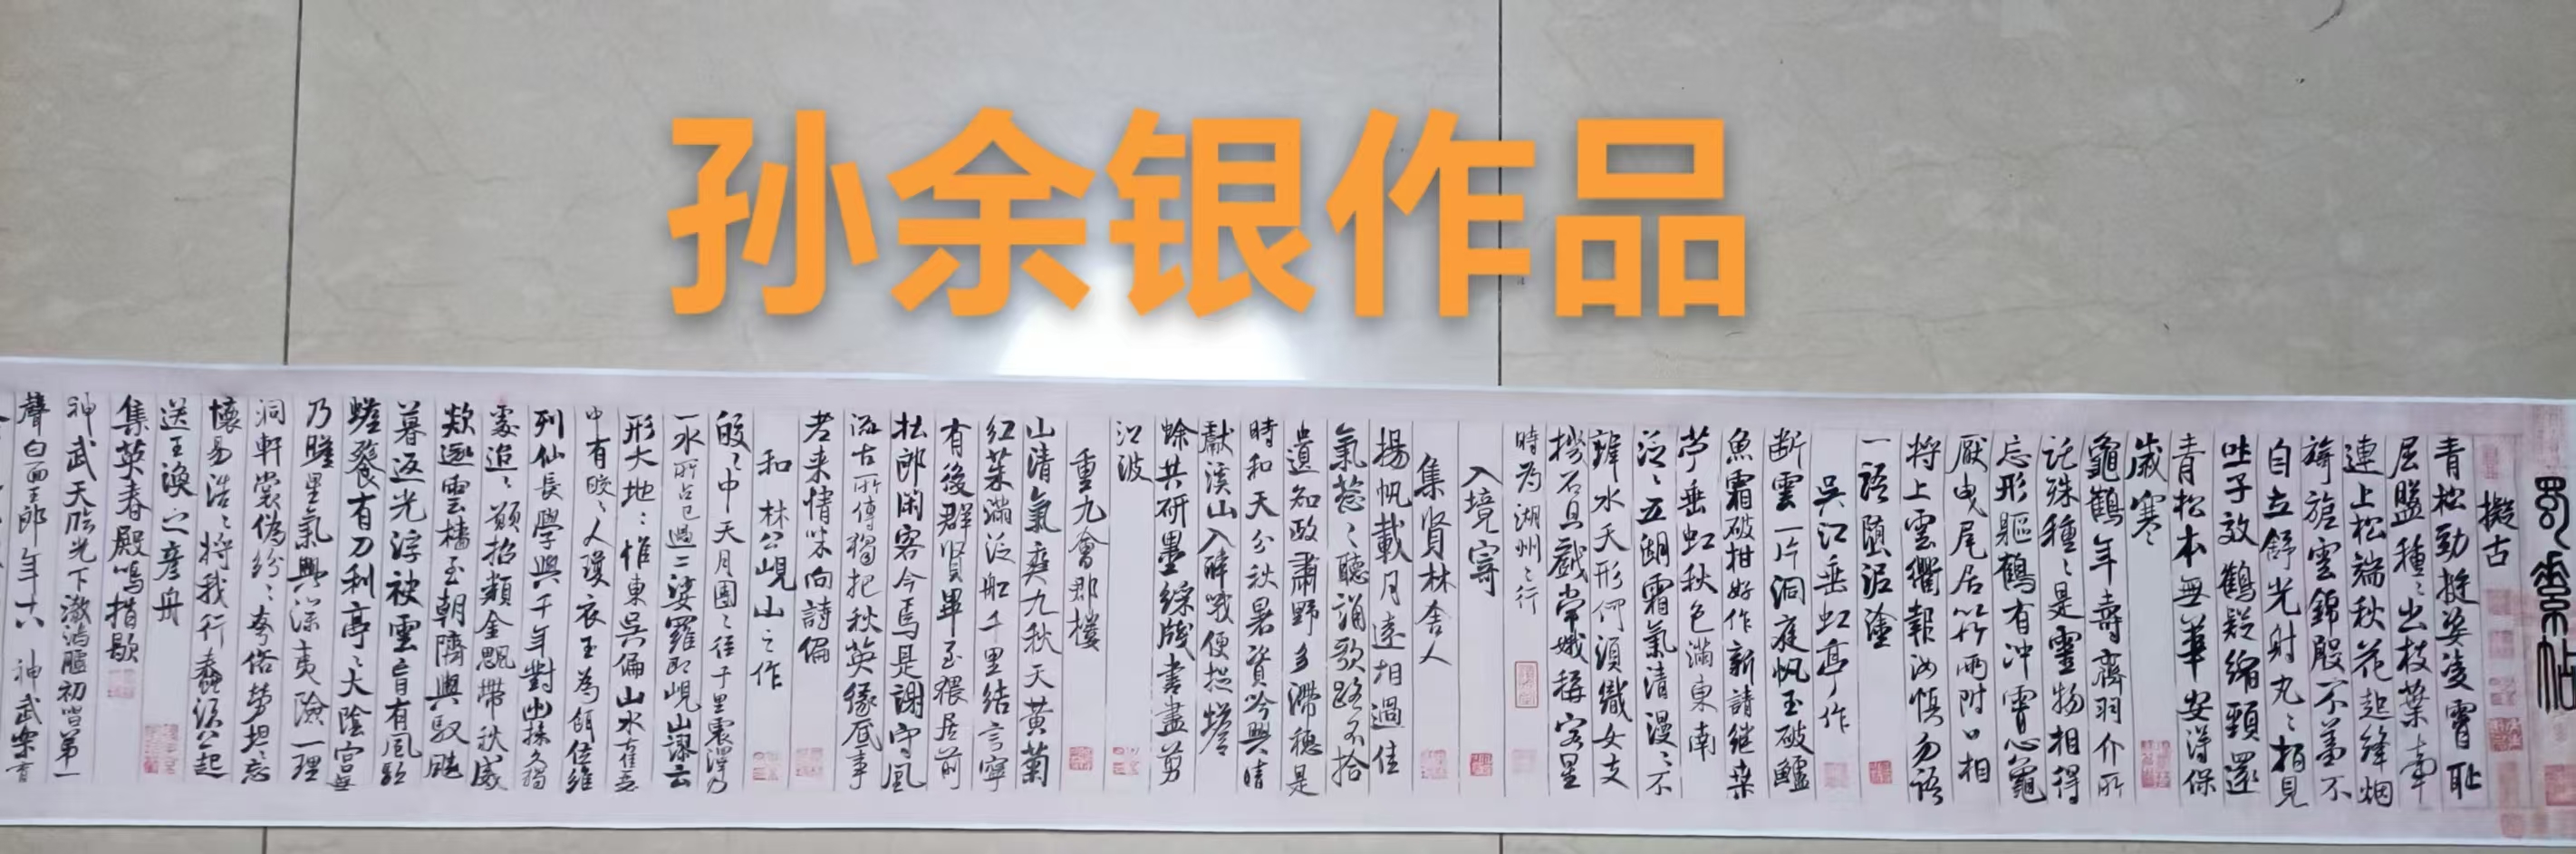 孙余银作品
蜀素帖
擬古
青松勁挺姿凌霄恥
屈盤種〻出枝葉牽
連上松端秋花起絳烟
旖旎雲錦殷不羞不
自立舒光射丸〻柏見
吐子效鶴疑縮頸還
青松本無華安得保
歲寒
龜鶴年壽齊羽介所
託殊種〻是靈物相得
忘形軀鶴有沖霄心龜
厭曳尾居以竹兩附口相
將上雲衢報汝慎勿語
一語墮泥塗
吳江垂虹亭作
断雲一片洞庭帆玉破鱸
魚霜破柑好作新詩繼桑
苧垂虹秋色滿東南
泛〻五湖霜氣清漫〻不
辨水天形何須織女支
機石且戲常娥稱客星
時為湖州之行
入境寄
集賢林舍人
揚帆載月遠相過佳
氣蔥〻聽誦歌路不拾
遺知政肅野多滯穗是
時和天分秋暑資吟興晴
獻溪山入醉哦便捉蟾
蜍共研墨綵牋書盡剪
江波
重九會郡樓
山清氣爽九秋天黃菊
紅茱滿泛船千里結言寧
有後群賢畢至猥居前
杜郎閑客今焉是謝守風
流古所傳獨把秋英緣底事
老来情味向詩偏
和林公峴山之作
皎〻中天月團〻徑千里震澤乃
一水所占已過二娑羅即峴山謬云
形大地〻惟東吳偏山水古佳麗
中有皎〻人瓊衣玉為餌位維
列仙長學與千年對幽操久獨
處迢〻願招類金颸帶秋威
欻逐雲檣至朝隮輿馭飈
暮返光浮袂雲盲有風駟
蟾餮有刀利亭〻太陰宮無
乃瞻星氣興深夷險一理
洞軒裳偽紛〻夸俗勞坦〻忘
懷易浩〻將我行蠢〻須公起
送王渙之彥舟
集英春殿鳴捎歇
神武天臨光下澈鴻臚初唱第一
聲白面王郎年十八神武樂育